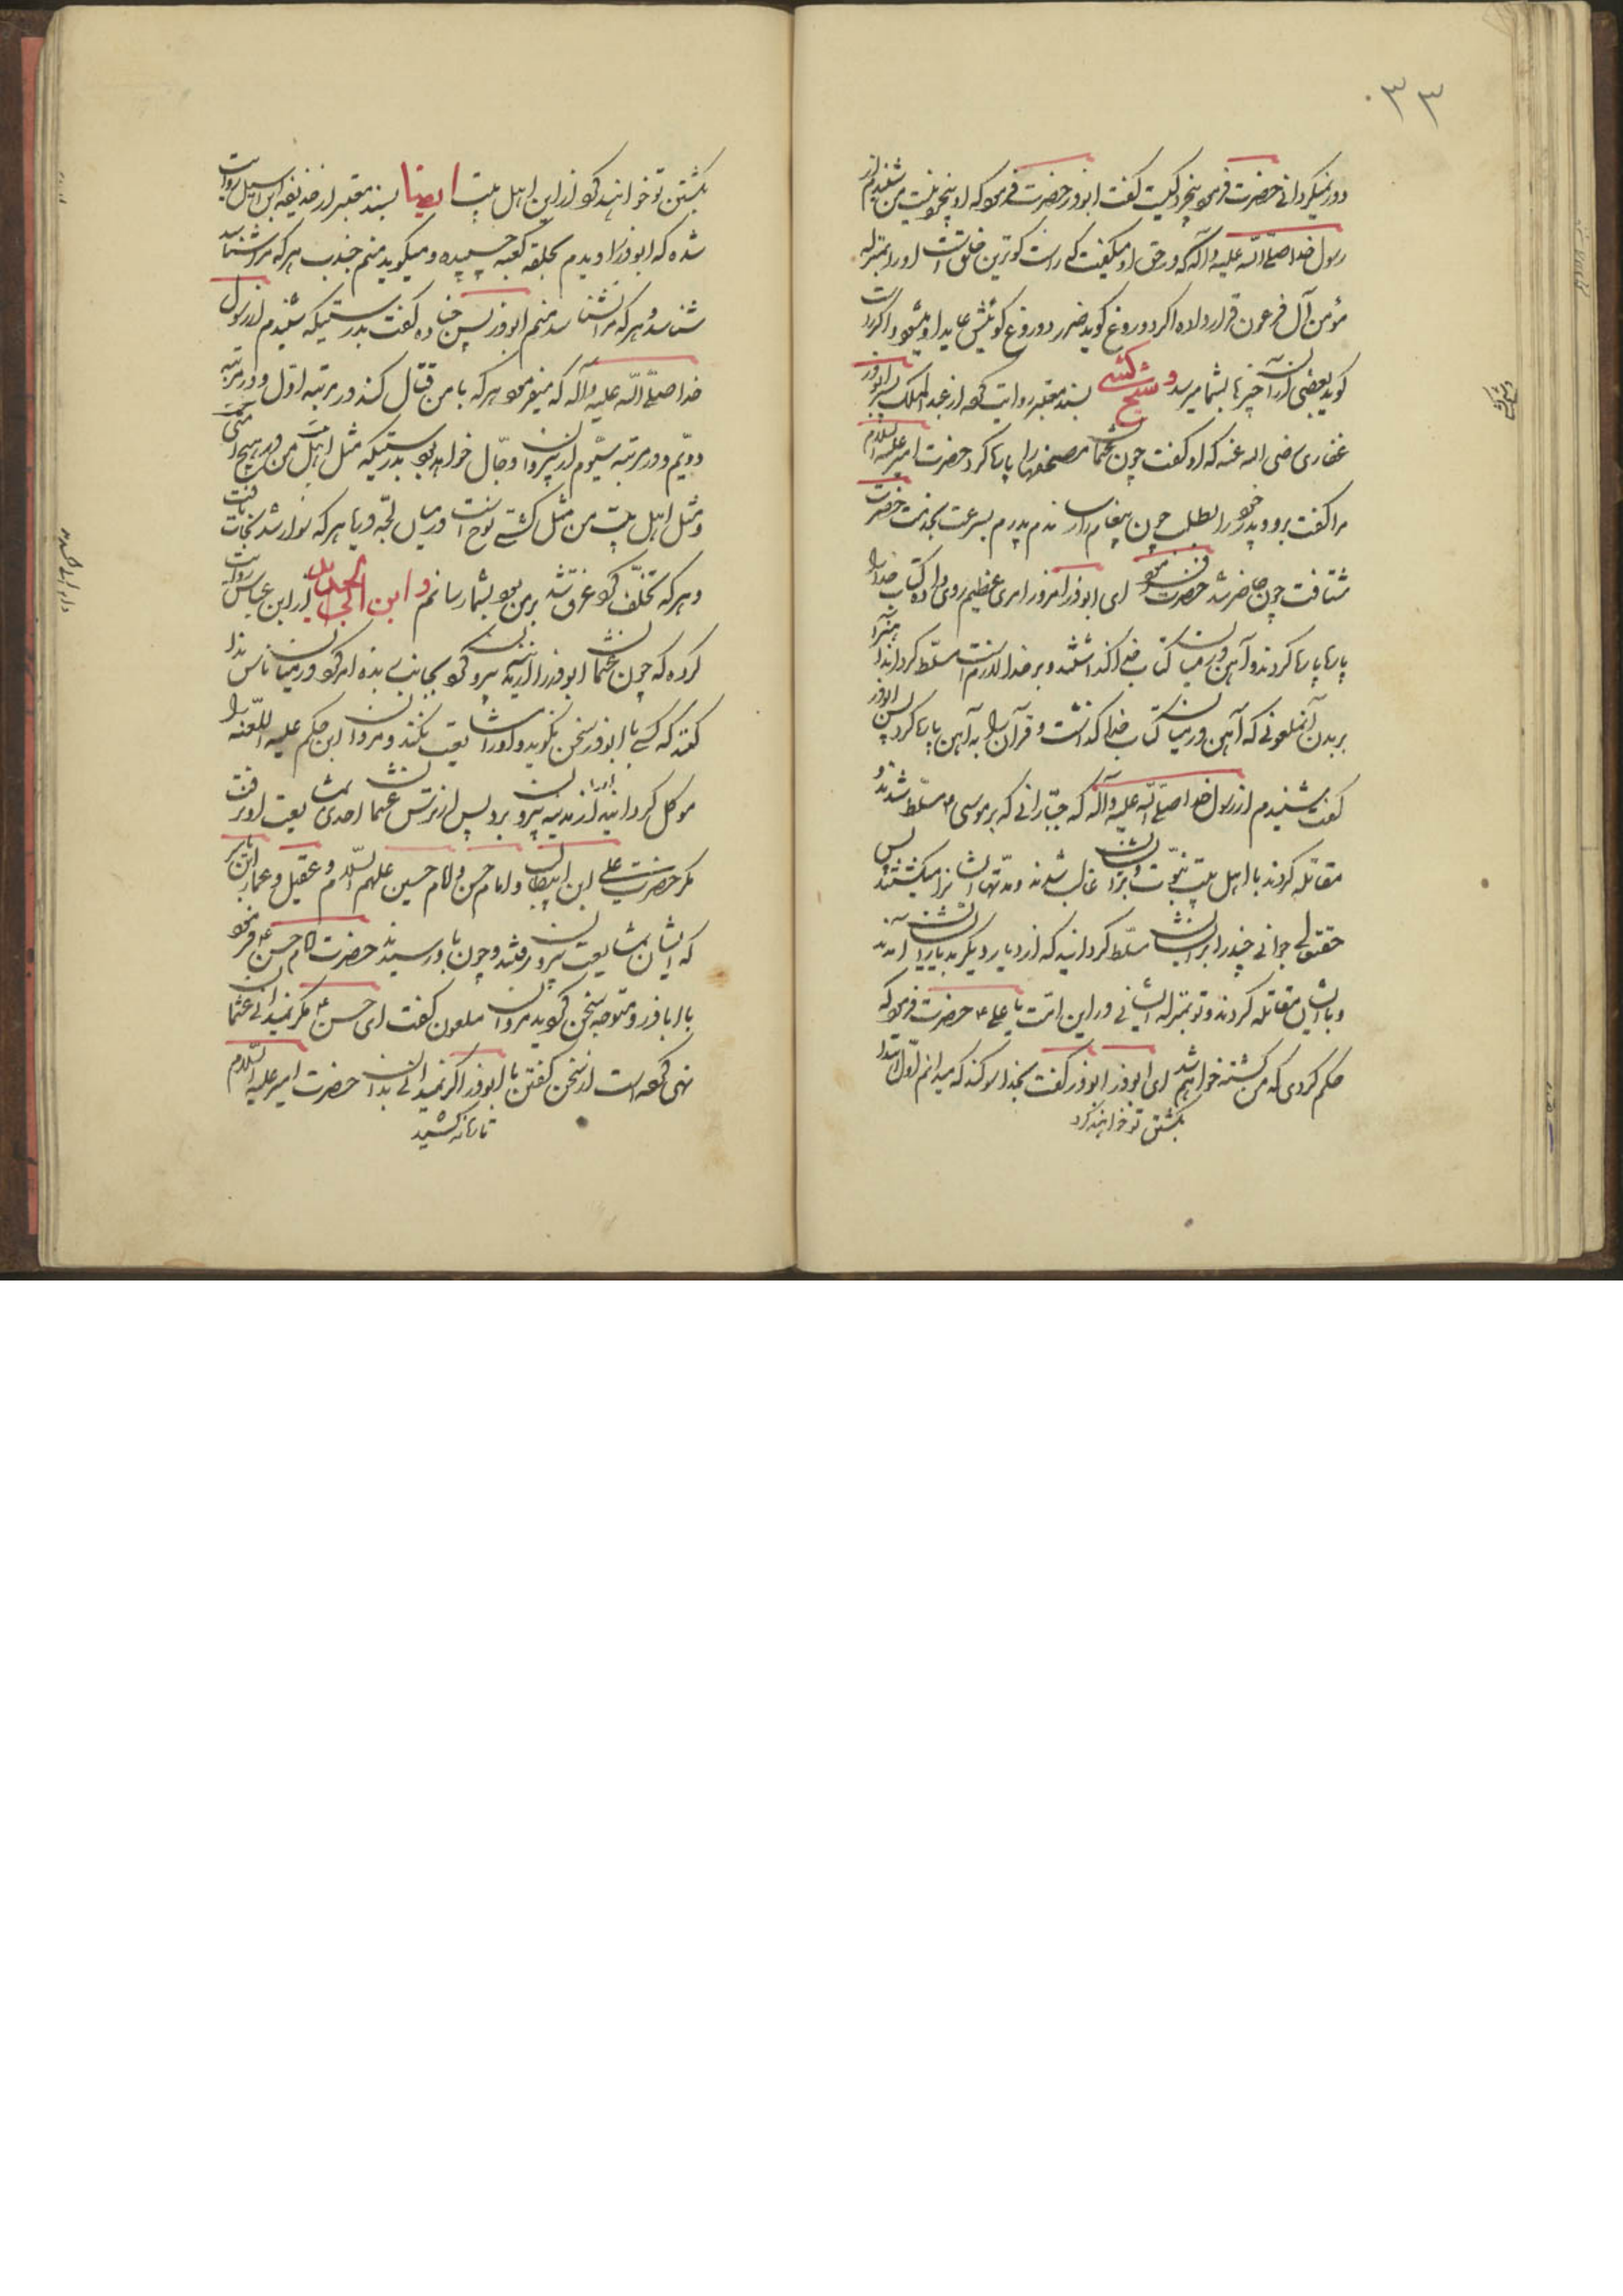 ۰۳۳
دور نمیکردانی حضرت فرمود پنجم کیست گفت ابوذر حضرت فرمود که او پنجم نیست من شنیدم از
رسول خدا صلی الله علیه وآله که در حق او میگفت که راست کوترین خلق است او را بمنزله
مؤمن آل فرعون قرار داده اکر دروغ کوید ضرر دروغ کوئیش عاید او میشود و اکر راست
کوید بعضی از آن چیزها بشما میرسد و شیخ کشی بسند معتبر روایت کرده از عبد الملک پسر ابوذر
غفاری رضی الله عنه که او گفت چون عثمان مصحفها را پاره کرد حضرت امیر علیه السلام
مرا گفت برو و پدر خود را بطلب چون پیغام را رساندم پدرم بسرعت بخدمت حضرت
شتافت چون حاضر شد حضرت فرمود ای ابوذر امروز امری عظیم روی داده کتاب خدا را
پاره پاره کردند و آهن در میان کتاب خدا کذاشتند و بر خدا لازم است مسلط کرداند آهن را
بر بدن آنملعونی که آهن در میان کتاب خدا کذاشت و قرآن را به آهن پاره کرد پس ابوذر
گفت شنیدم از رسول خدا صلی الله علیه وآله که جبارانی که بر موسی مسلط شدند و
مقاتله کردند با اهل بیت نبوت و بر ایشان غالب شدند و مدتها ایشانرا میکشتند پس
حقتعالی جوانی چند را بر ایشان مسلط کردانید که از دیار دیگر بدیار ایشان آمدند
و با ایشان مقاتله کردند و تو بمنزله ایشانی در این امت یا علی ع حضرت فرمود که
حکم کردی که من کشته خواهم شد ای ابوذر ابوذر گفت بخدا سوکند که میدانم اول ابتدا
بکشتن تو خواهند کرد
بکشتن تو خواهند کرد از این اهل بیت ایضا بسند معتبر از حذیفه ابن اسید روایت
شده که ابوذر را دیدم بحلقه کعبه چسپیده و میکوید منم جندب هر که مرا شناسد
شناسد و هر که مرا نشناسد منم ابوذر پسر جناده گفت بدرستیکه شنیدم از رسول
خدا صلی الله علیه وآله که میفرمود هر که با من قتال کند در مرتبه اول و در مرتبه
دویم و در مرتبه سیوم از پیروان دجال خواهد بود بدرستیکه مثل اهل بیت من در میان امت
و مثل اهل بیت من مثل کشتی نوح است در میان لجه دریا هر که سوار شد نجات یافت
و هر که تخلف کرد غرق شد بر من بود بشما رسانم و ابن ابی الحدید از ابن عباس روایت
کرده که چون عثمان ابوذر را از مدینه بیرون کرد بجانب ربذه امر کرد در میان ناس ندا
کنند که کسی با ابوذر سخن نکوید و او را مشایعت نکند و مروان ابن حکم علیه اللعنه را
موکل کردانید او را از مدینه بیرون برد پس از ترس عثمان احدی بمشایعت او نرفت
مکر حضرت علی ابن ابیطالب و امام حسن و امام حسین علیهم السلام و عقیل و عمار ابن یاسر
که ایشان بمشایعت بیرون رفتند و چون باو رسیدند حضرت امام حسن ع فرمود
با اباذر و متوجه سخن کوید مروان ملعون گفت ای حسن ع مکر نمیدانی عثمان
نهی کرده است از سخن گفتن با ابوذر اکر نمیدانی بدان حضرت امیر علیه السلام
تازیانه کشید